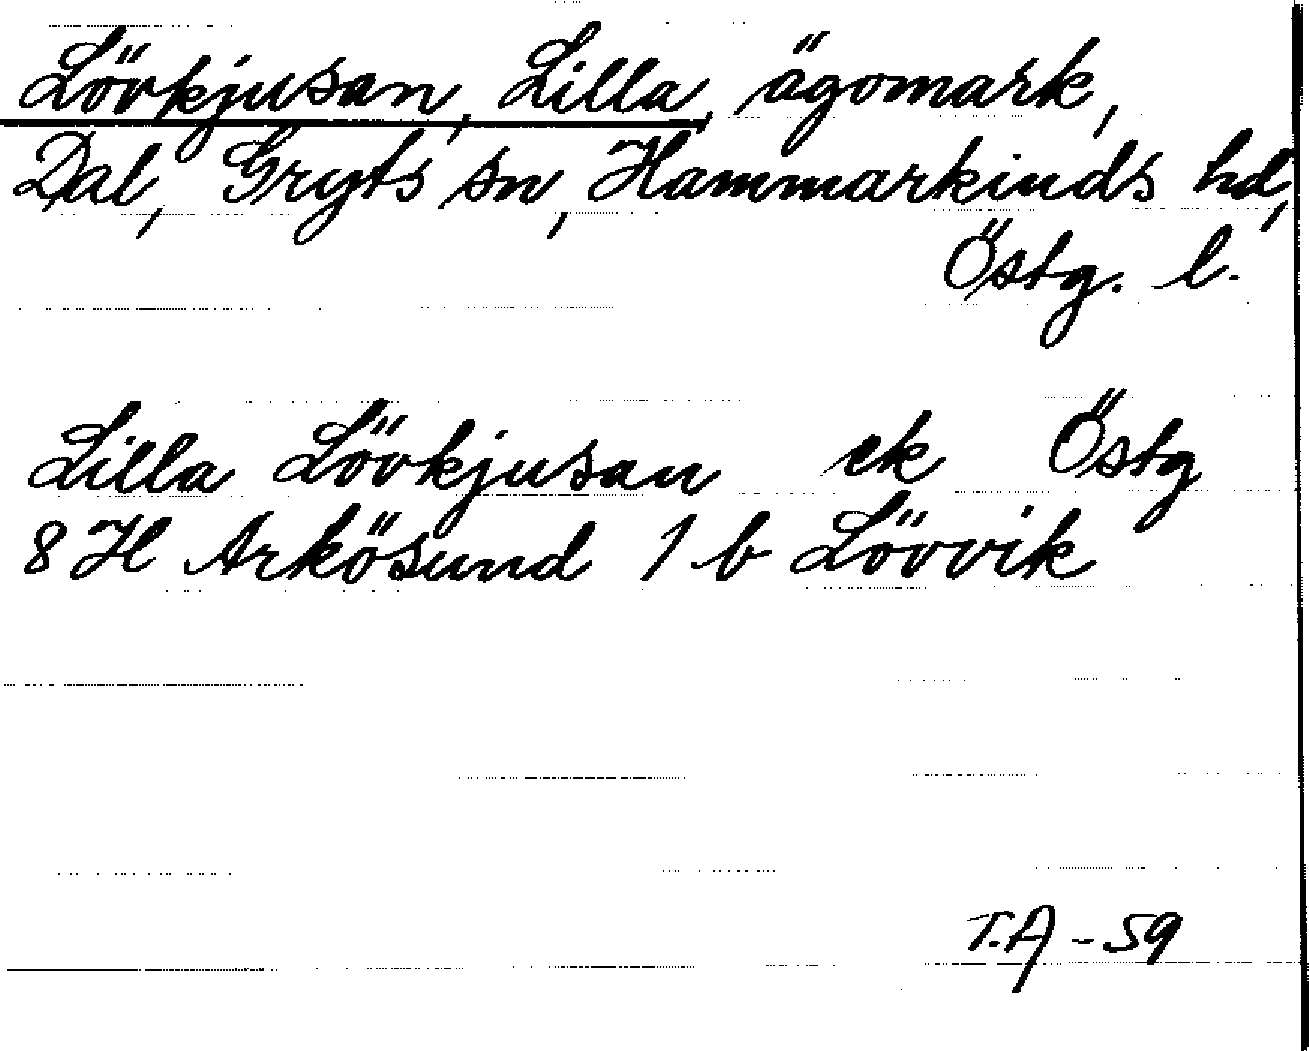 Lövkjusan, Lilla, ägomark,
Dal, Gryts sn, Hammarkinds hd,
Östg. l.
Lilla Lövkjusan ek Östg
8 H Arkösund 1 b Lövvik
T.A - 59